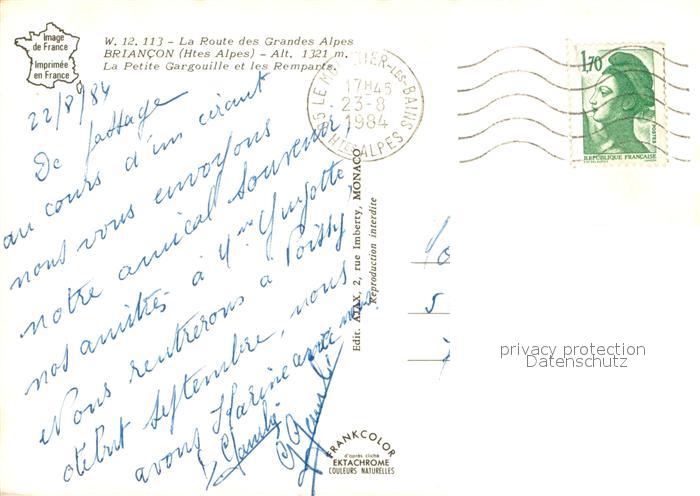 Image
de France
Imprimée
en France
W. 12. 113 - La Route des Grandes Alpes
BRIANÇON (Htes Alpes) - Alt. 1321 m.
La Petite Gargouille et les Remparts.
05 LE MONETIER-LES-BAINS
17H45
23-8
1984
HTES ALPES
1,70
POSTES
RÉPUBLIQUE FRANÇAISE
22/8/84
De passage
au cours d'un circuit
nous vous envoyons
notre amical souvenir,
nos amitiés à Mme
Nous rentrerons à Poissy
début septembre, nous
avons avec nous
Edit. AJAX, 2, rue Imberty, MONACO
Reproduction interdite
privacy protection
Datenschutz
FRANKCOLOR
d'après cliché
EKTACHROME
COULEURS NATURELLES